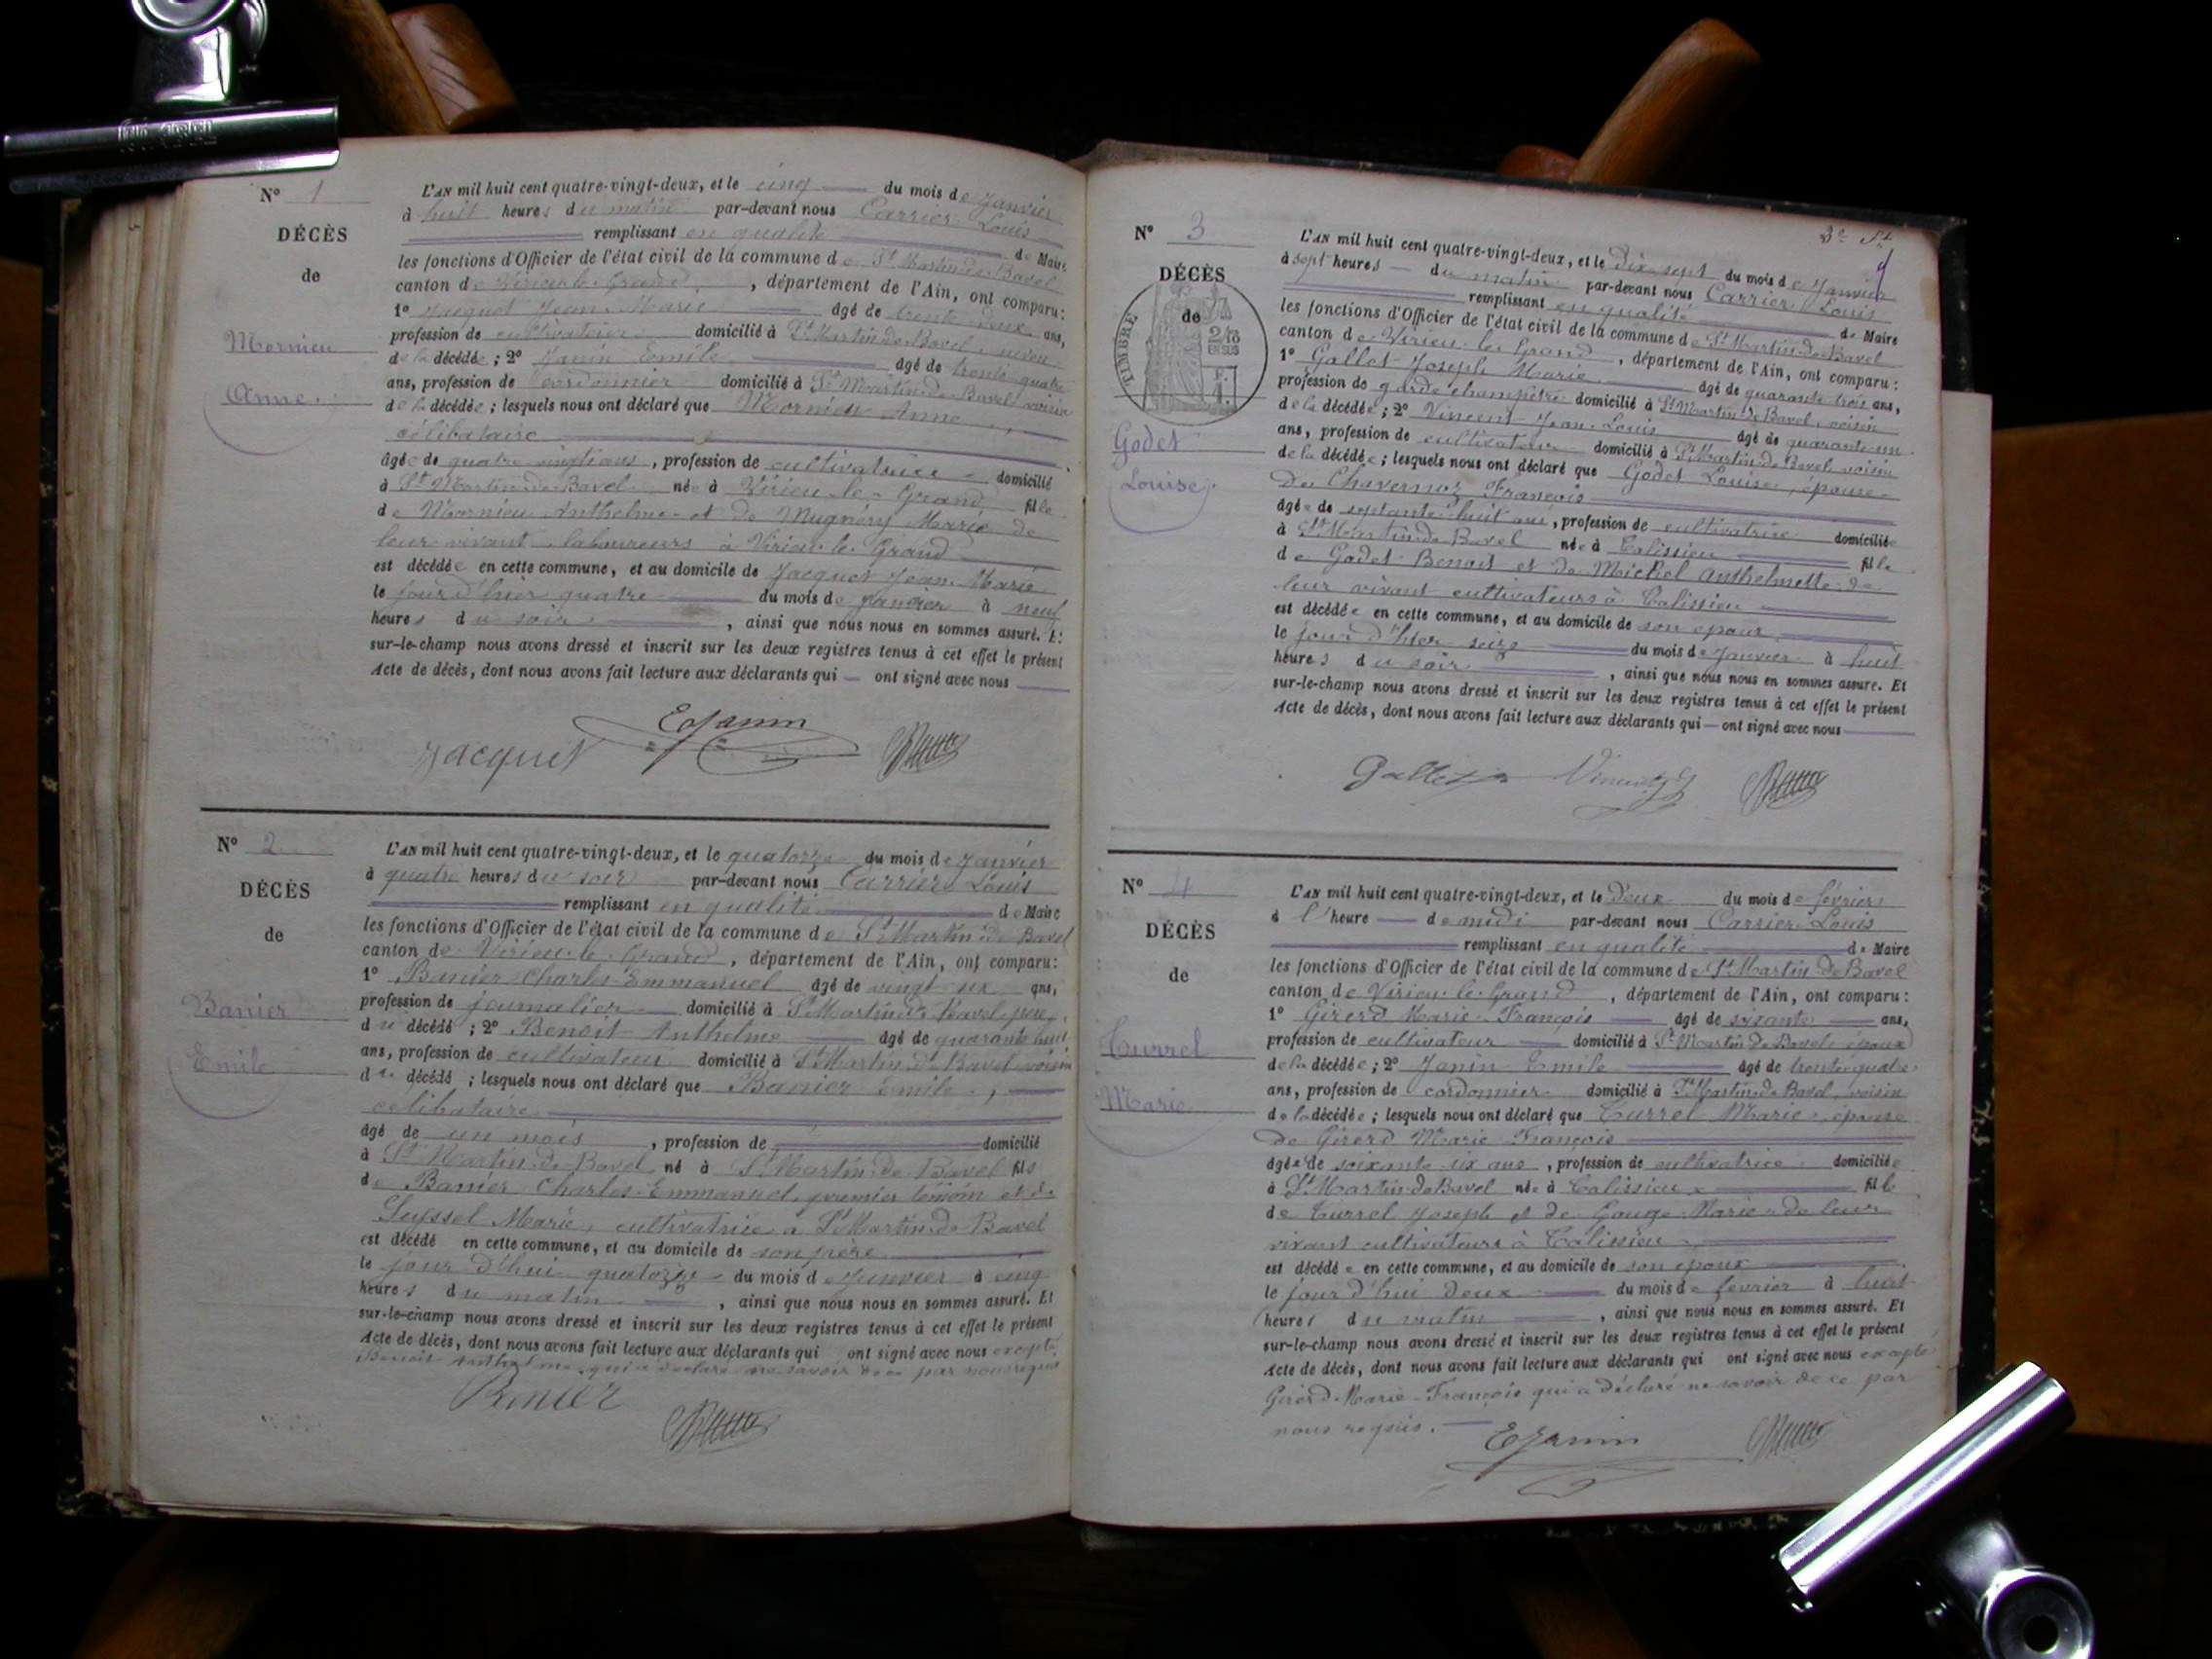 N° 1
DÉCÈS
de
Mornieu
Anne
L'AN mil huit cent quatre-vingt-deux, et le cinq du mois de Janvier
à huit heures du matin par-devant nous Carrier Louis
remplissant en qualité de Maire
les fonctions d'Officier de l'état civil de la commune de St Martin de Bavel
canton de Virieu-le-Grand, département de l'Ain, ont comparu:
1° Jacquet Jean Marie âgé de trente deux ans,
profession de cultivateur domicilié à St Martin de Bavel, neveu
de la décédée; 2° Janin Emile âgé de trente quatre
ans, profession de cordonnier domicilié à St Martin de Bavel voisin
de la décédée; lesquels nous ont déclaré que Mornieu Anne,
célibataire
âgée de quatre vingt ans, profession de cultivatrice domicilié
à St Martin de Bavel née à Virieu-le-Grand fille
de Mornieu Anthelme et de Mugnery Marie de
leur vivant laboureurs à Virieu-le-Grand
est décédée en cette commune, et au domicile de Jacquet Jean Marie
le jour d'hier quatre du mois de janvier à neuf
heures du soir, ainsi que nous nous en sommes assuré. Et
sur-le-champ nous avons dressé et inscrit sur les deux registres tenus à cet effet le présent
Acte de décès, dont nous avons fait lecture aux déclarants qui ont signé avec nous
EJanin
Jacquet
N° 2
DÉCÈS
de
Banier
Emile
L'AN mil huit cent quatre-vingt-deux, et le quatorze du mois de Janvier
à quatre heures du soir par-devant nous Carrier Louis
remplissant en qualité de Maire
les fonctions d'Officier de l'état civil de la commune de St Martin de Bavel
canton de Virieu-le-Grand, département de l'Ain, ont comparu:
1° Banier Charles Emmanuel âgé de vingt six ans,
profession de journalier domicilié à St Martin de Bavel père
du décédé; 2° Benoit Anthelme âgé de quarante huit
ans, profession de cultivateur domicilié à St Martin de Bavel voisin
du décédé; lesquels nous ont déclaré que Banier Emile,
célibataire
âgé de un mois, profession de domicilié
à St Martin de Bavel né à St Martin de Bavel fils
de Banier Charles Emmanuel, premier témoin et de
Seyssel Marie, cultivatrice à St Martin de Bavel
est décédé en cette commune, et au domicile de son père
le jour d'hui quatorze du mois de Janvier à cinq
heures du matin, ainsi que nous nous en sommes assuré. Et
sur-le-champ nous avons dressé et inscrit sur les deux registres tenus à cet effet le présent
Acte de décès, dont nous avons fait lecture aux déclarants qui ont signé avec nous excepté
Benoit Anthelme qui a déclaré ne savoir de ce par nous requis
Banier
3e
N° 3
DÉCÈS
de
TIMBRE
2/10
EN SUS
Godet
Louise
L'AN mil huit cent quatre-vingt-deux, et le dix sept du mois de Janvier
à sept heures du matin par-devant nous Carrier Louis
remplissant en qualité de Maire
les fonctions d'Officier de l'état civil de la commune de St Martin de Bavel
canton de Virieu-le-Grand, département de l'Ain, ont comparu:
1° Gallet Joseph Marie âgé de quarante trois ans,
profession de garde champêtre domicilié à St Martin de Bavel, voisin
de la décédée; 2° Vincent Jean Louis âgé de quarante un
ans, profession de cultivateur domicilié à St Martin de Bavel voisin
de la décédée; lesquels nous ont déclaré que Godet Louise, épouse
de Chavernoz François
âgée de septante huit ans, profession de cultivatrice domiciliée
à St Martin de Bavel née à Talissieu fille
de Godet Benoit et de Michel Anthelmette de
leur vivant cultivateurs à Talissieu
est décédée en cette commune, et au domicile de son époux
le jour d'hier seize du mois de Janvier à huit
heures du soir, ainsi que nous nous en sommes assuré. Et
sur-le-champ nous avons dressé et inscrit sur les deux registres tenus à cet effet le présent
Acte de décès, dont nous avons fait lecture aux déclarants qui ont signé avec nous
Gallet Vincent
N° 4
DÉCÈS
de
Turrel
Marie
L'AN mil huit cent quatre-vingt-deux, et le deux du mois de février
à l'heure de midi par-devant nous Carrier Louis
remplissant en qualité de Maire
les fonctions d'Officier de l'état civil de la commune de St Martin de Bavel
canton de Virieu-le-Grand, département de l'Ain, ont comparu:
1° Girerd Marie-François âgé de soixante ans,
profession de cultivateur domicilié à St Martin de Bavel époux
de la décédée; 2° Janin Emile âgé de trente quatre
ans, profession de cordonnier domicilié à St Martin de Bavel, voisin
de la décédée; lesquels nous ont déclaré que Turrel Marie, épouse
de Girerd Marie François
âgée de soixante six ans, profession de cultivatrice domiciliée
à St Martin de Bavel née à Talissieu fille
de Turrel Joseph et de Gouge Marie de leur
vivant cultivateurs à Talissieu
est décédée en cette commune, et au domicile de son époux
le jour d'hui deux du mois de fevrier à huit
heures du matin, ainsi que nous nous en sommes assuré. Et
sur-le-champ nous avons dressé et inscrit sur les deux registres tenus à cet effet le présent
Acte de décès, dont nous avons fait lecture aux déclarants qui ont signé avec nous excepté
Girerd Marie-François qui a déclaré ne savoir de ce par
nous requis.
EJanin